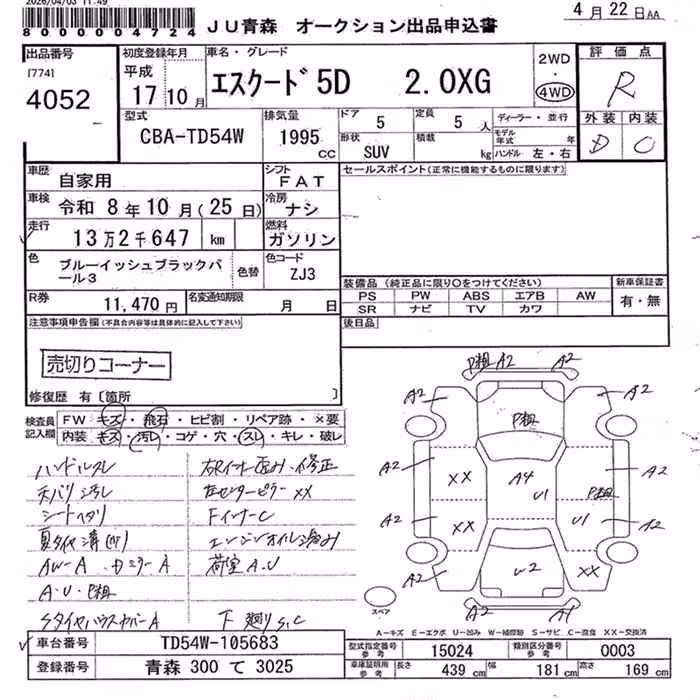 2026/04/03 11:49
8000004724
JU青森 オークション出品申込書
4月22日AA
出品番号
[774]
4052
初度登録年月
平成
17 10月
車名・グレード
エスクード 5D 2.0XG
2WD
・
4WD
評価点
R
外装 内装
D C
型式
CBA-TD54W
排気量
1995
CC
ドア
5
定員
5人
ディーラー・並行
形状
SUV
積載
kg
モデル年式
年
ハンドル 左・右
車歴
自家用
シフト
FAT
セールスポイント(正常に機能するものに限ります)
車検
令和 8年10月(25日)
冷房
ナシ
走行
13万2千647 km
燃料
ガソリン
色
ブルーイッシュブラックパール3
色替
色コード
ZJ3
装備品(純正品に限り○をつけてください)
新車保証書
PS PW ABS エアB AW
有・無
SR ナビ TV カワ
R券
11,470円
名変通知期限
月 日
後日品
注意事項申告欄(不具合内容等は具体的に記入して下さい)
売切りコーナー
修復歴 有〔箇所 〕
検査員記入欄
FW キズ・飛石・ヒビ割・リペア跡・×要
内装 キズ・汚レ・コゲ・穴・スレ・キレ・破レ
ハンドルスレ
天バリ汚レ
シートヘタリ
AW-A
A・U・P粗
左センターピラーXX
FインナーC
荷室A.U
下廻りS.C
P粗 A2 A2
A2 A2
P粗
A2 XX A4 U1 P粗 A2
A2 XX U1 A2
A2 W2 XX
A2 A1
スペア
A-キズ E-エクボ U-凹み W-補修跡 S-サビ C-腐食 XX-交換済
車台番号
TD54W-105683
型式指定番号
参考
15024
類別区分番号
参考
0003
登録番号
青森 300 て 3025
車庫証明用
参考
長さ
439 cm
幅
181 cm
高さ
169 cm